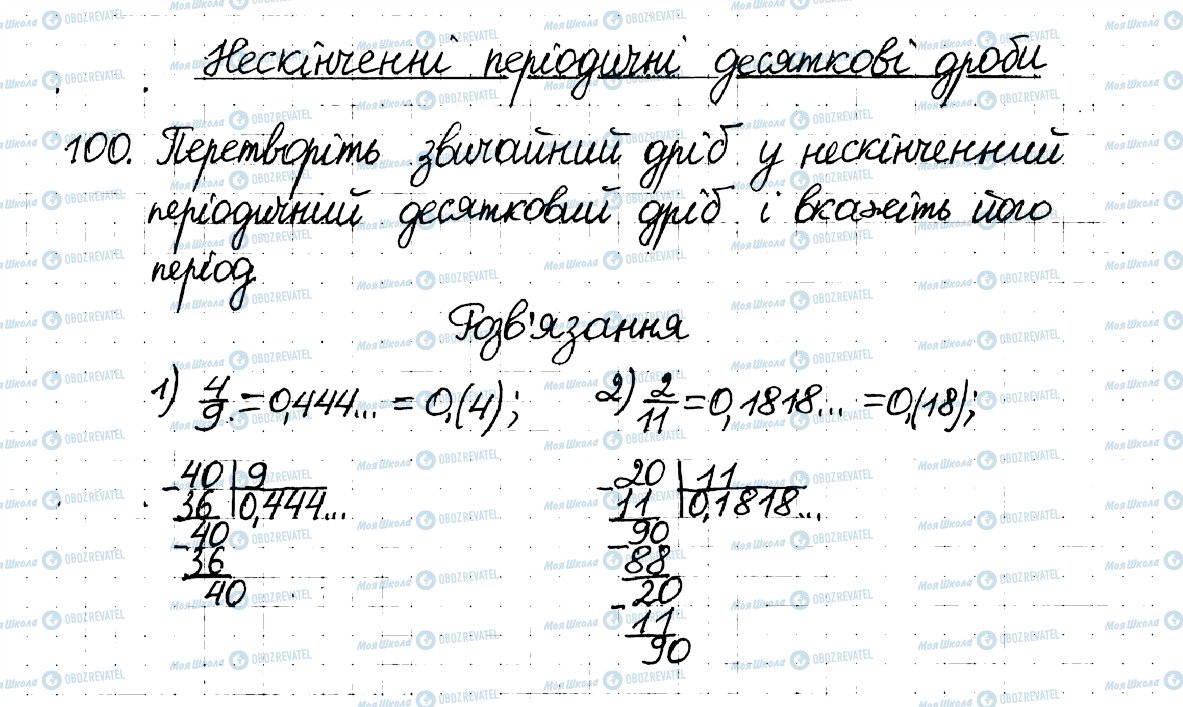 Нескінченні періодичні десяткові дроби
100. Перетворіть звичайний дріб у нескінченний
періодичний десятковий дріб і вкажіть його
період.
Розв'язання
1) 4/9 = 0,444... = 0,(4); 2) 2/11 = 0,1818... = 0,(18);
-40 | 9
36 | 0,444...
-40
36
40
-20 | 11
11 | 0,1818...
-90
88
-20
11
90
МояШкола OBOZREVATEL